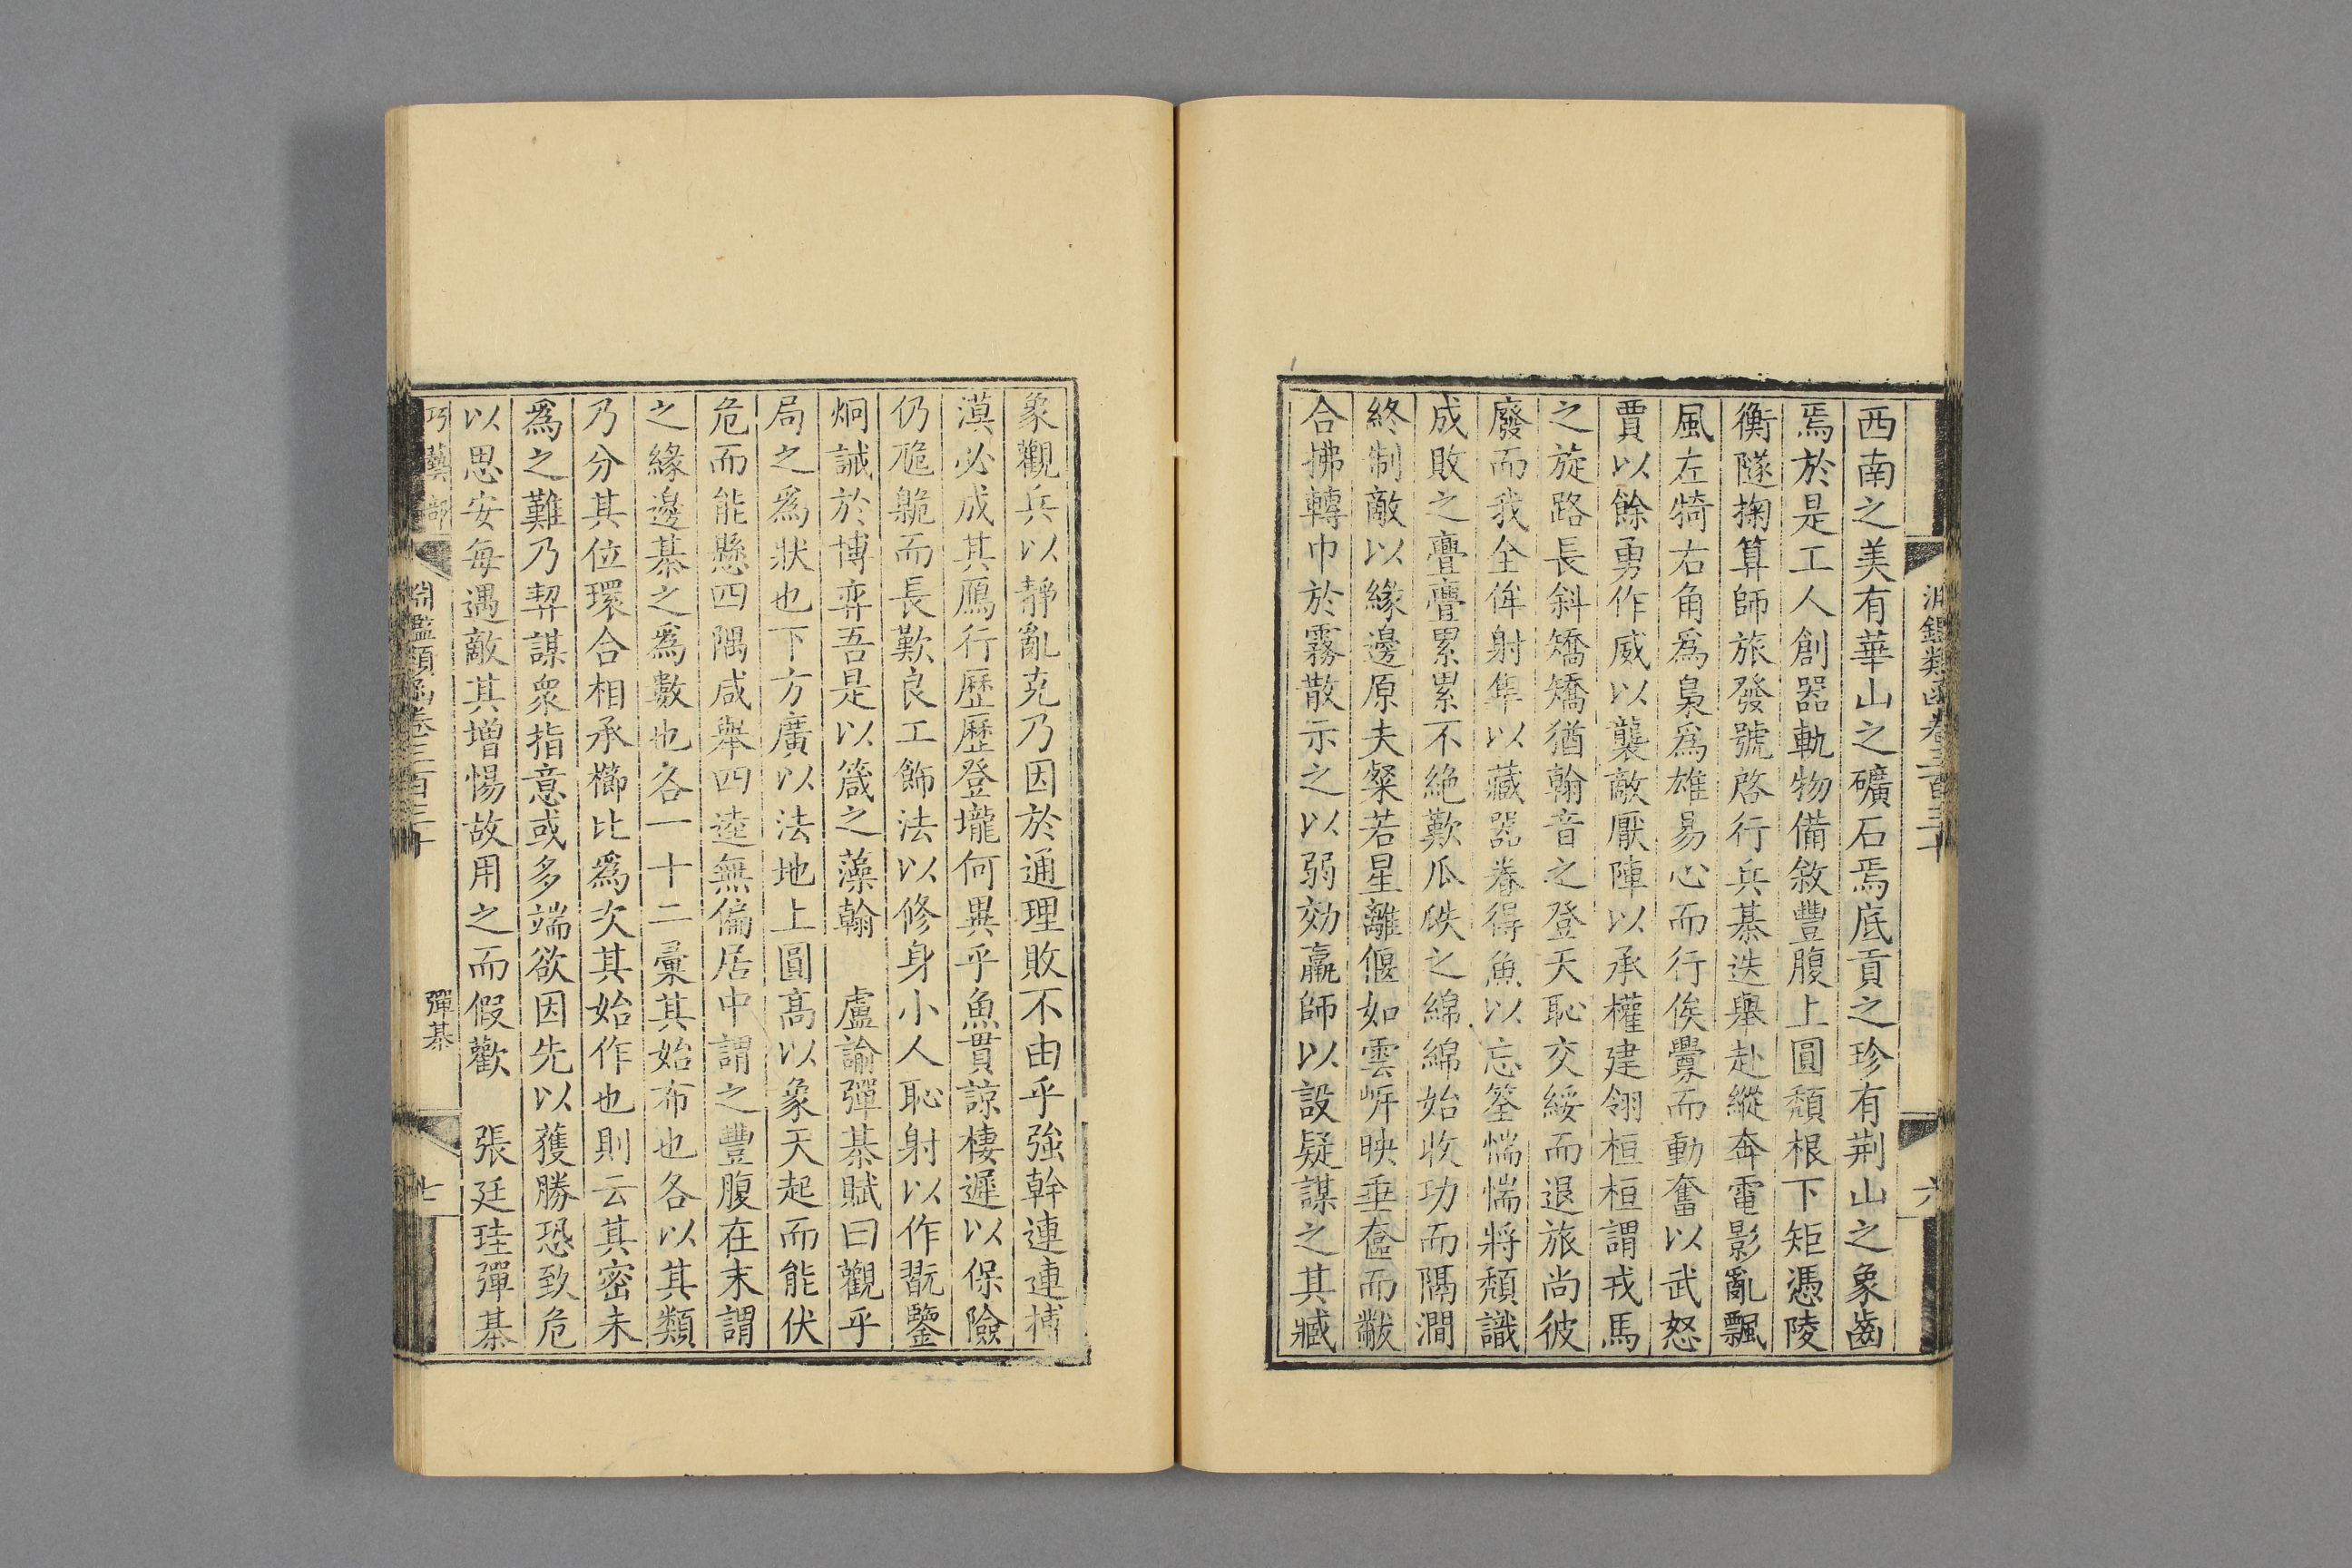 淵鑑類函卷三百三十
六
西南之美有華山之礦石焉底貢之珍有荆山之象齒
焉於是工人創器軌物備敘豐腹上圓頹根下矩憑陵
衡隧掬算師旅發號啓行兵棊迭舉赴縱奔電影亂飄
風左犄右角爲梟爲雄易心而行俟釁而動奮以武怒
賈以餘勇作威以襲敵厭陣以承權建翎桓桓謂戎馬
之旋路長斜矯矯猶翰音之登天恥交綏而退旅尚彼
廢而我全侔射隼以藏器眷得魚以忘筌惴惴將頹識
成敗之亹亹累累不絶歎瓜瓞之綿綿始收功而隔澗
終制敵以緣邊原夫粲若星離偃如雲岓映垂奩而黻
合拂轉巾於霧散示之以弱効羸師以設疑謀之其臧
象觀兵以靜亂克乃因於通理敗不由乎強幹連連摶
漠必成其鴈行歷歷登壠何異乎魚貫諒棲遲以保險
仍卼臲而長歎良工飾法以修身小人恥射以作翫鑒
炯誡於博弈吾是以箴之藻翰　盧諭彈棊賦曰觀乎
局之爲狀也下方廣以法地上圓高以象天起而能伏
危而能懸四隅咸舉四逵無偏居中謂之豐腹在末謂
之緣邊棊之爲數也各一十二彙其始布也各以其類
乃分其位環合相承櫛比爲次其始作也則云其密未
爲之難乃契謀衆指意或多端欲因先以獲勝恐致危
以思安每遇敵其增惕故用之而假歡　張廷珪彈棊
巧藝部
淵鑑類函卷三百三十
彈棊
七